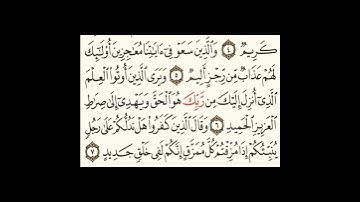 كَرِيمٌ ٤ وَالَّذِينَ سَعَوْ فِي ءَايَٰتِنَا مُعَٰجِزِينَ أُوْلَٰٓئِكَ
لَهُمْ عَذَابٌ مِّن رِّجْزٍ أَلِيمٌ ٥ وَيَرَى الَّذِينَ أُوتُوا۟ الْعِلْمَ
الَّذِىٓ أُنزِلَ إِلَيْكَ مِن رَّبِّكَ هُوَ الْحَقَّ وَيَهْدِىٓ إِلَىٰ صِرَٰطِ
الْعَزِيزِ الْحَمِيدِ ٦ وَقَالَ الَّذِينَ كَفَرُوا۟ هَلْ نَدُلُّكُمْ عَلَىٰ رَجُلٍ
يُنَبِّئُكُمْ إِذَا مُزِّقْتُمْ كُلَّ مُمَزَّقٍ إِنَّكُمْ لَفِى خَلْقٍ جَدِيدٍ ٧